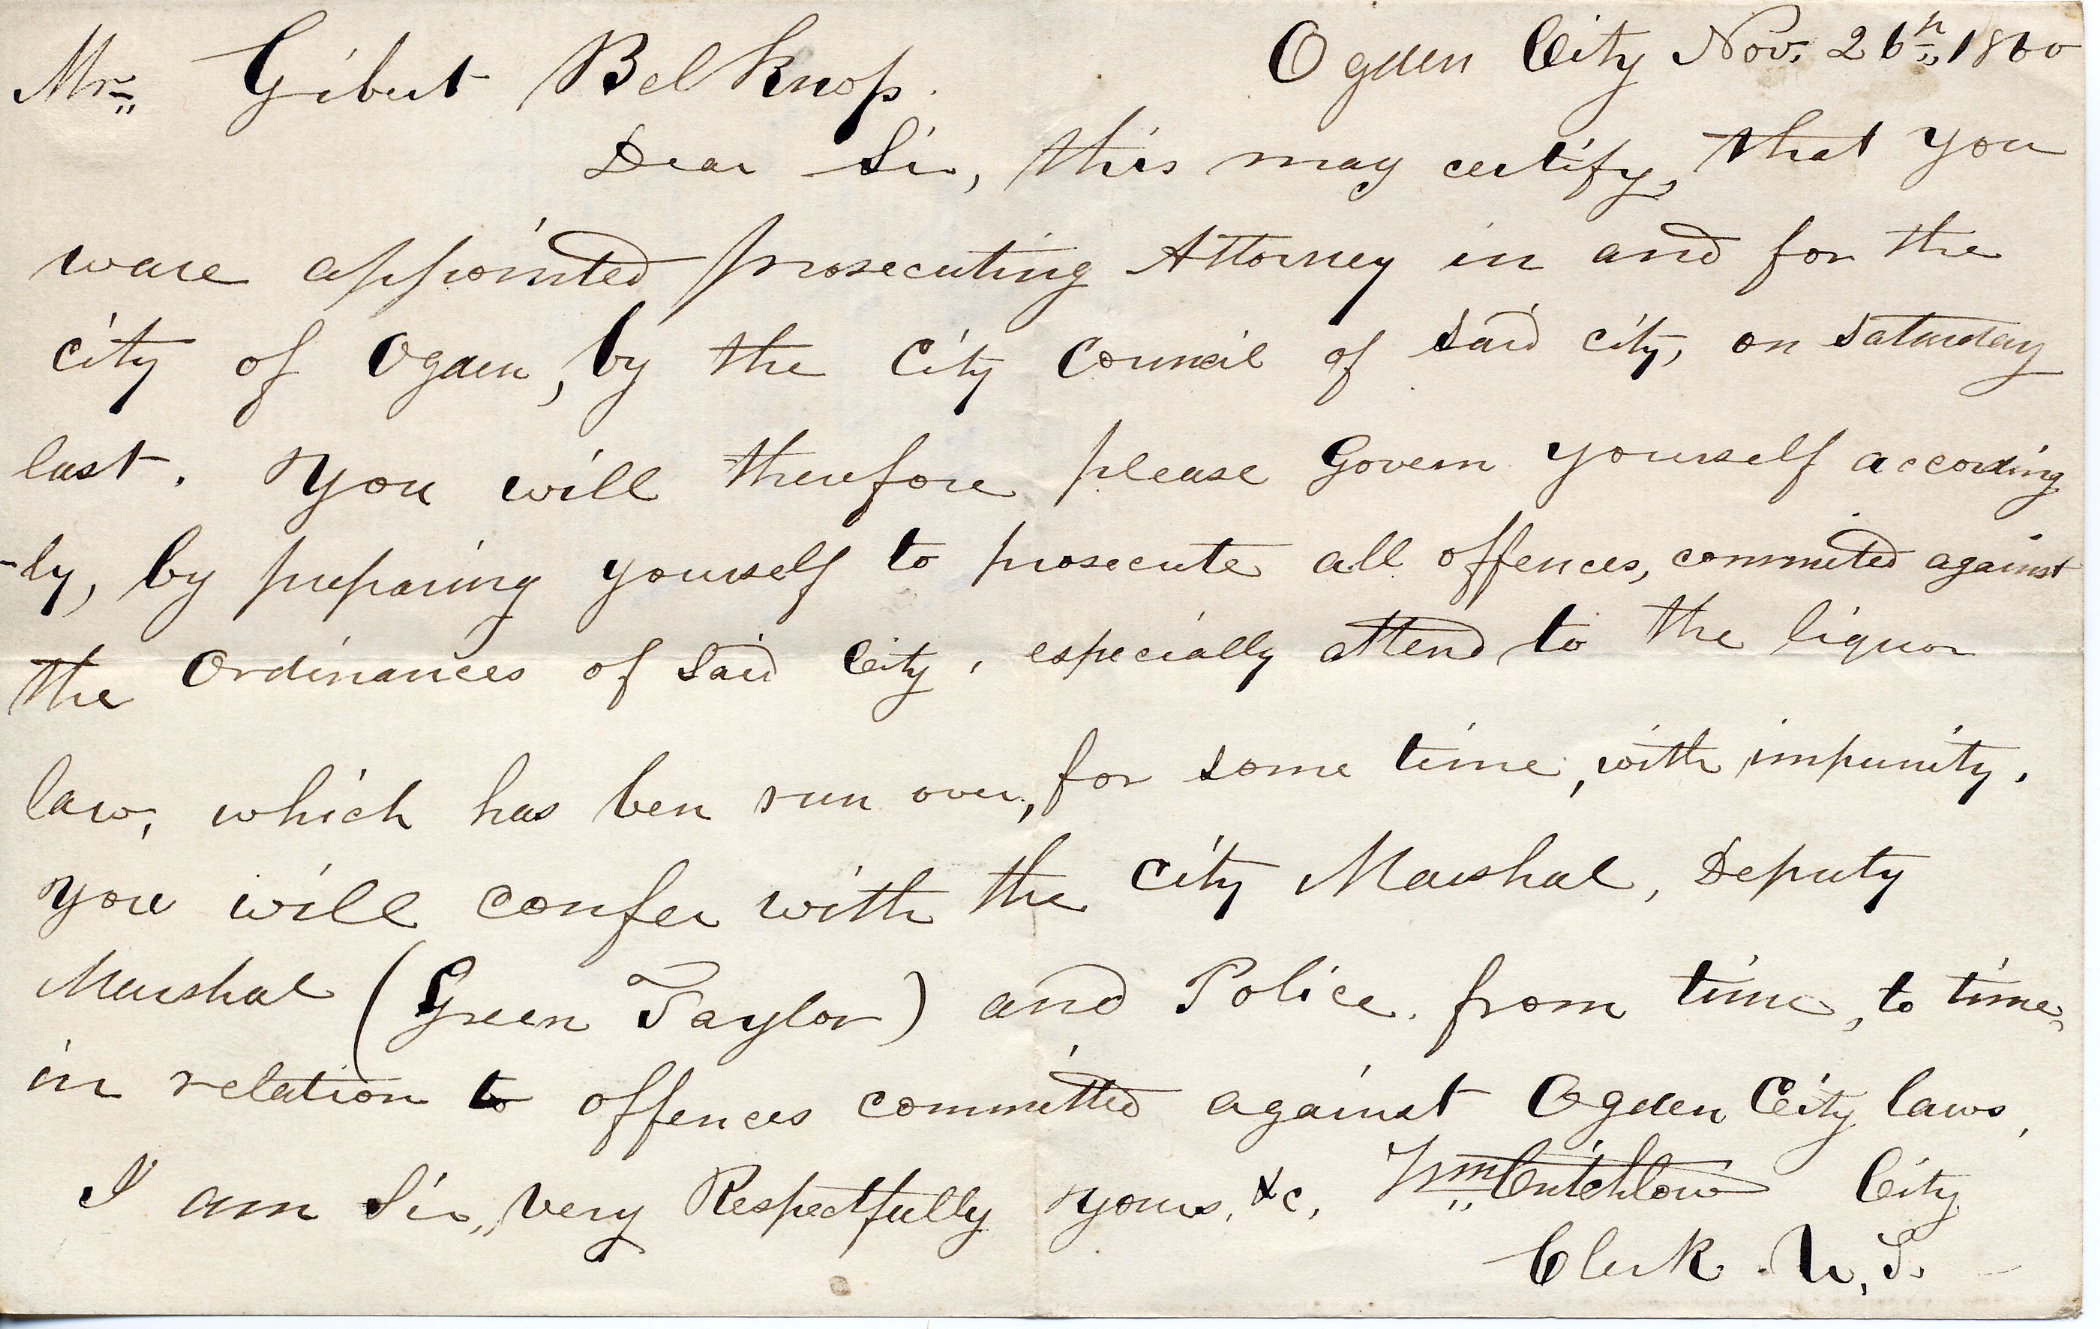 Ogden City Nov. 26th, 1860
Mr. Gibert Belknop.
Dear Sir, this may certify, that you
ware appointed prosecuting Attorney in and for the
city of Ogden, by the City Council of said city, on Saturday
last. You will therefore please Govern yourself according
-ly, by preparing yourself to prosecute all offences, commited against
the Ordinances of said City, especially attend to the liquor
law, which has ben run over, for some time, with impunity.
You will confer with the City Marshal, Deputy
Marshal (Green Taylor) and Police. from time, to time,
in relation to offences committed against Ogden City laws,
I am Sir, very Respectfully yours, &c, Wm Critchlow City
Clerk. U. T.